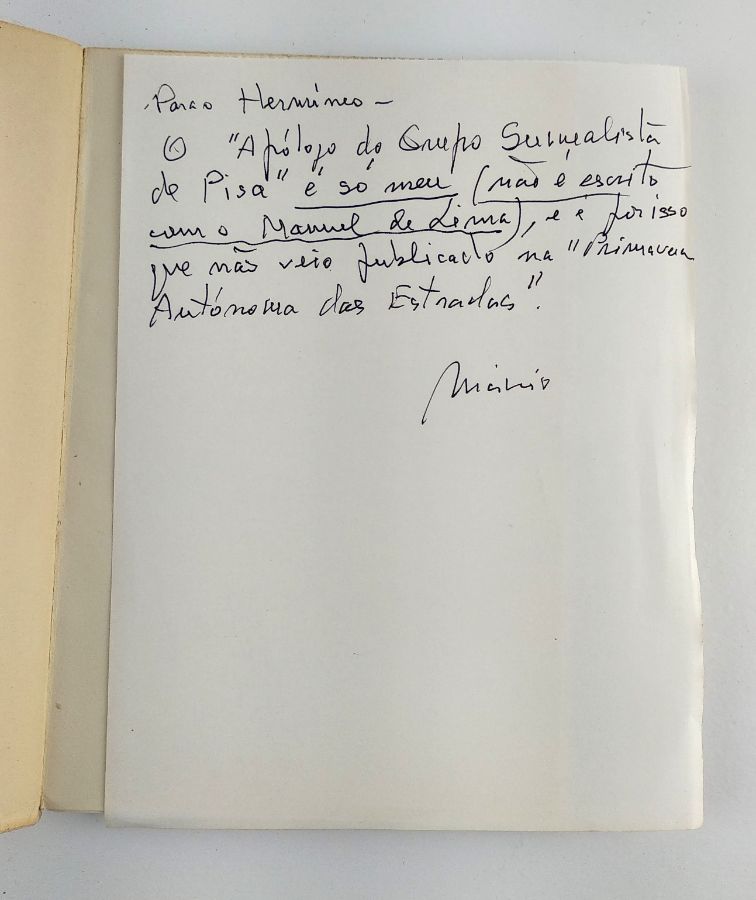 Para o Hermíneo –
O "Apólogo do Grupo Surrealista
de Pisa" é só meu (não é escrito
com o Manuel de Lima), e é por isso
que não veio publicado na "Primavera
Autónoma das Estradas".
Mário